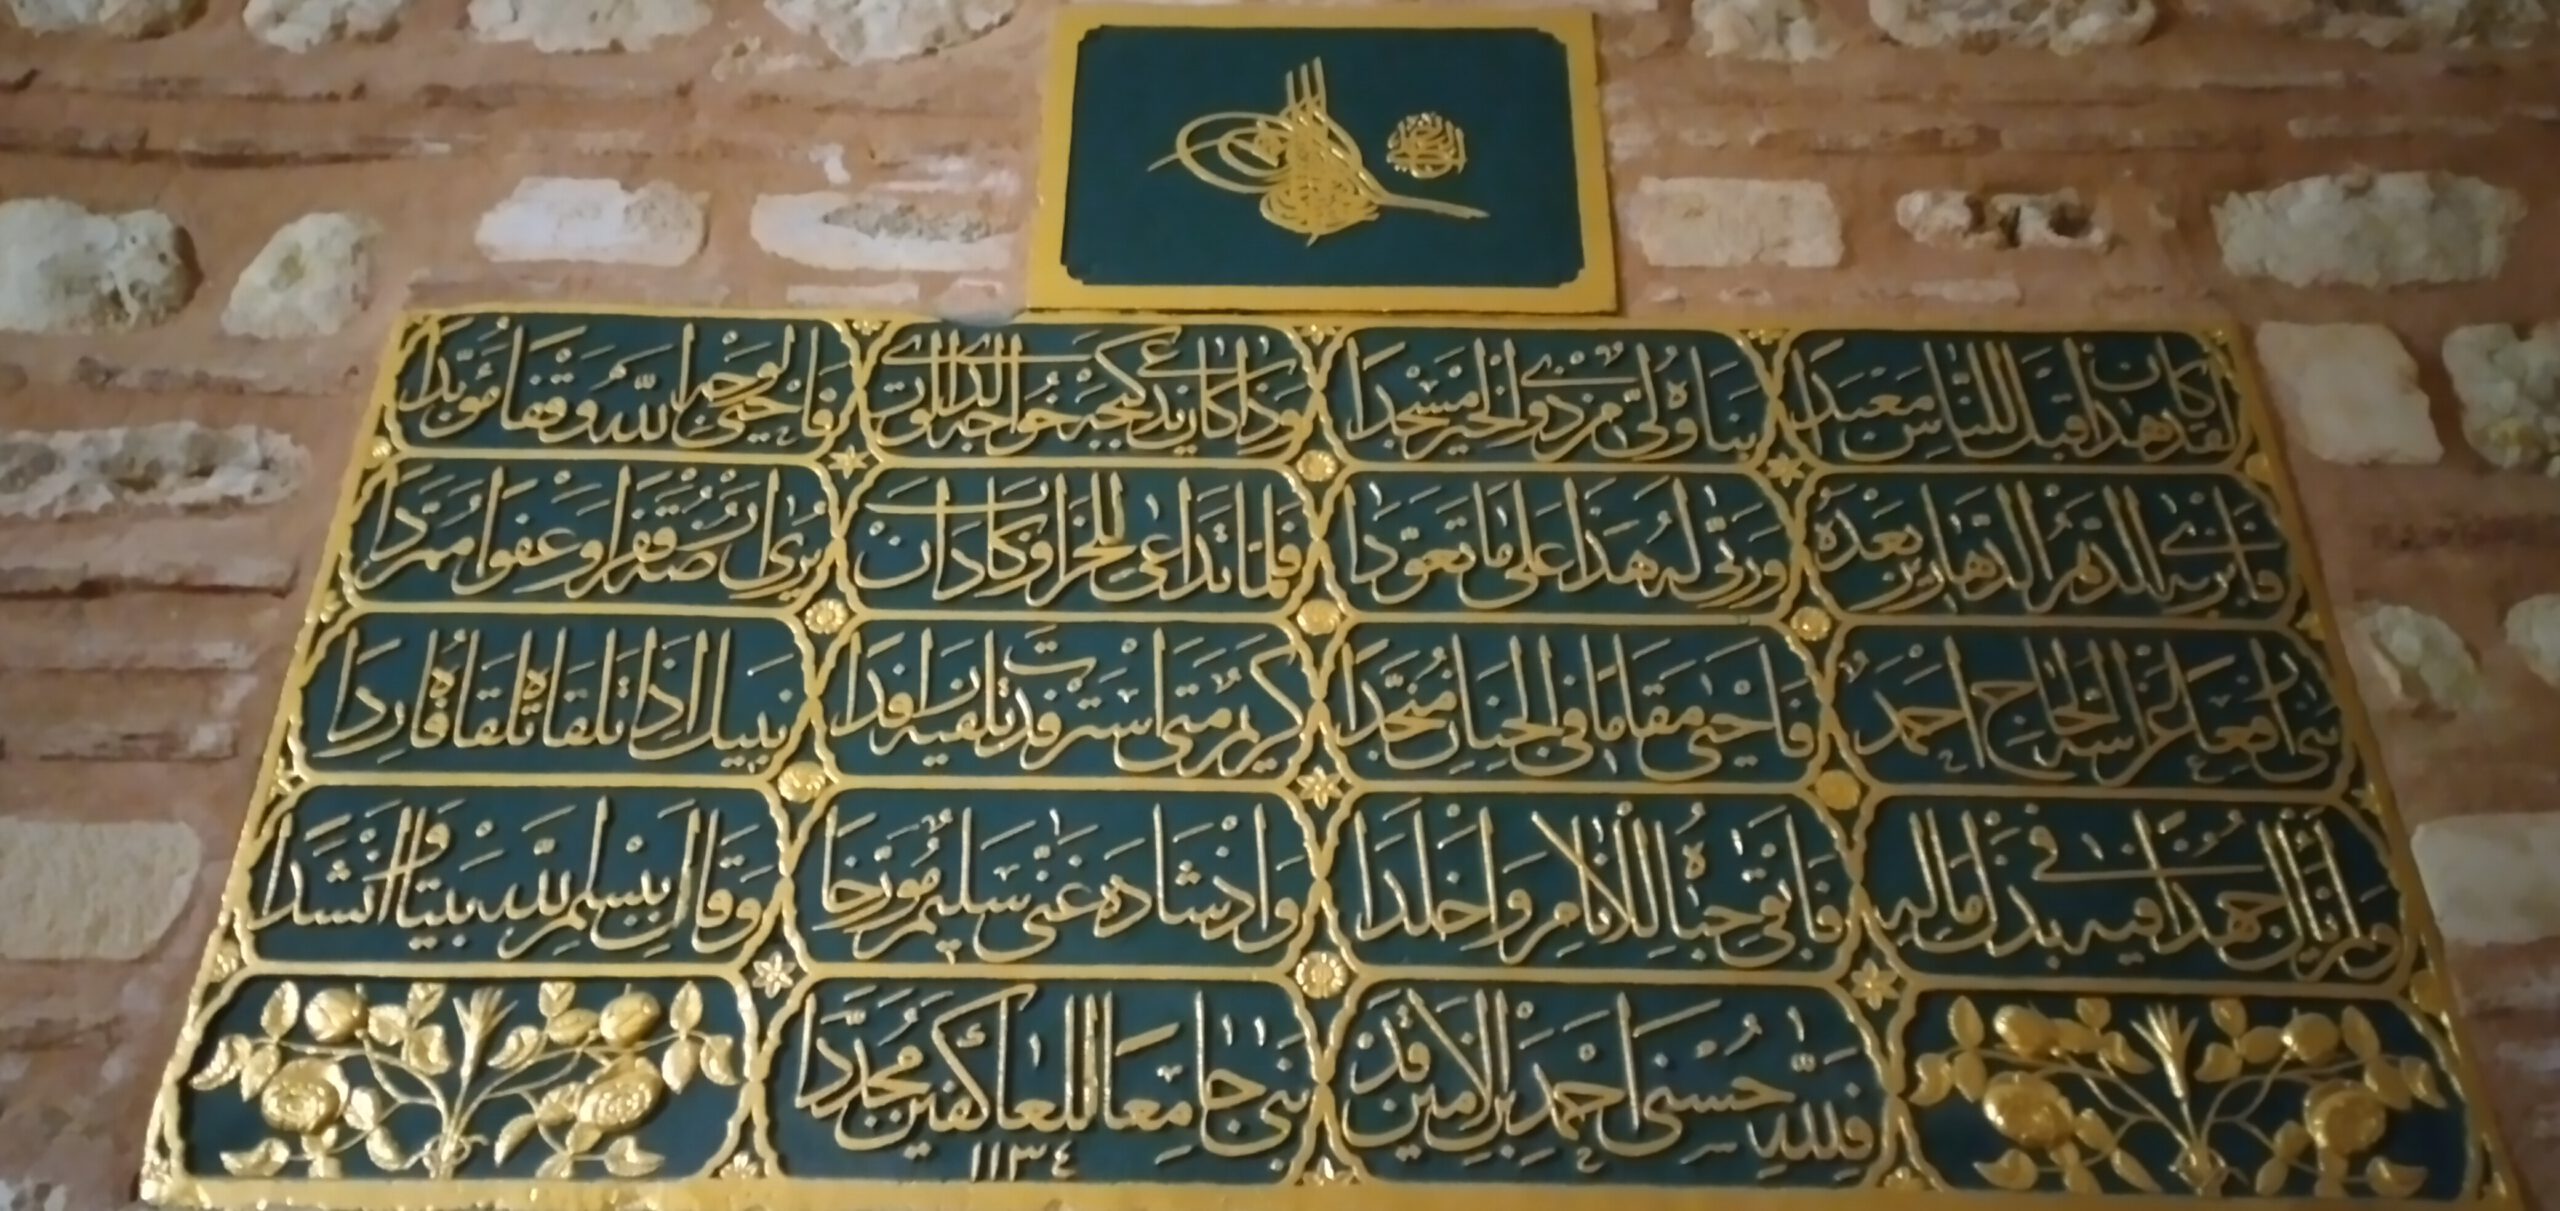 لقد كان هذا قبل للناس معبدا بناه ولي من ذوي الخير مسجدا وذا كان يدعى كيجه خواجه الذي فاحيى لوجه الله وقفا مؤبدا
الدهر بعده وربى له هذا على ما تعودا فلما تداعى للخراب وكاد ان يرى صفرا وعفوا ممردا
الحاج احمد فاحيى مقاما في الجنان منجدا كريم متى استرفدت تلقيه رافدا نبيل اذا تلقاه تلقاه فاردا
هذا فيه بذل ماله فابقى حباه للانام واخلدا واذ شاده غنى سليم مورخا وقال ببسم الله بيتا وانشدا
فلله حسنى احمد بن الامين قد بنى جامعا للعاكفين مجددا
١١٣٤